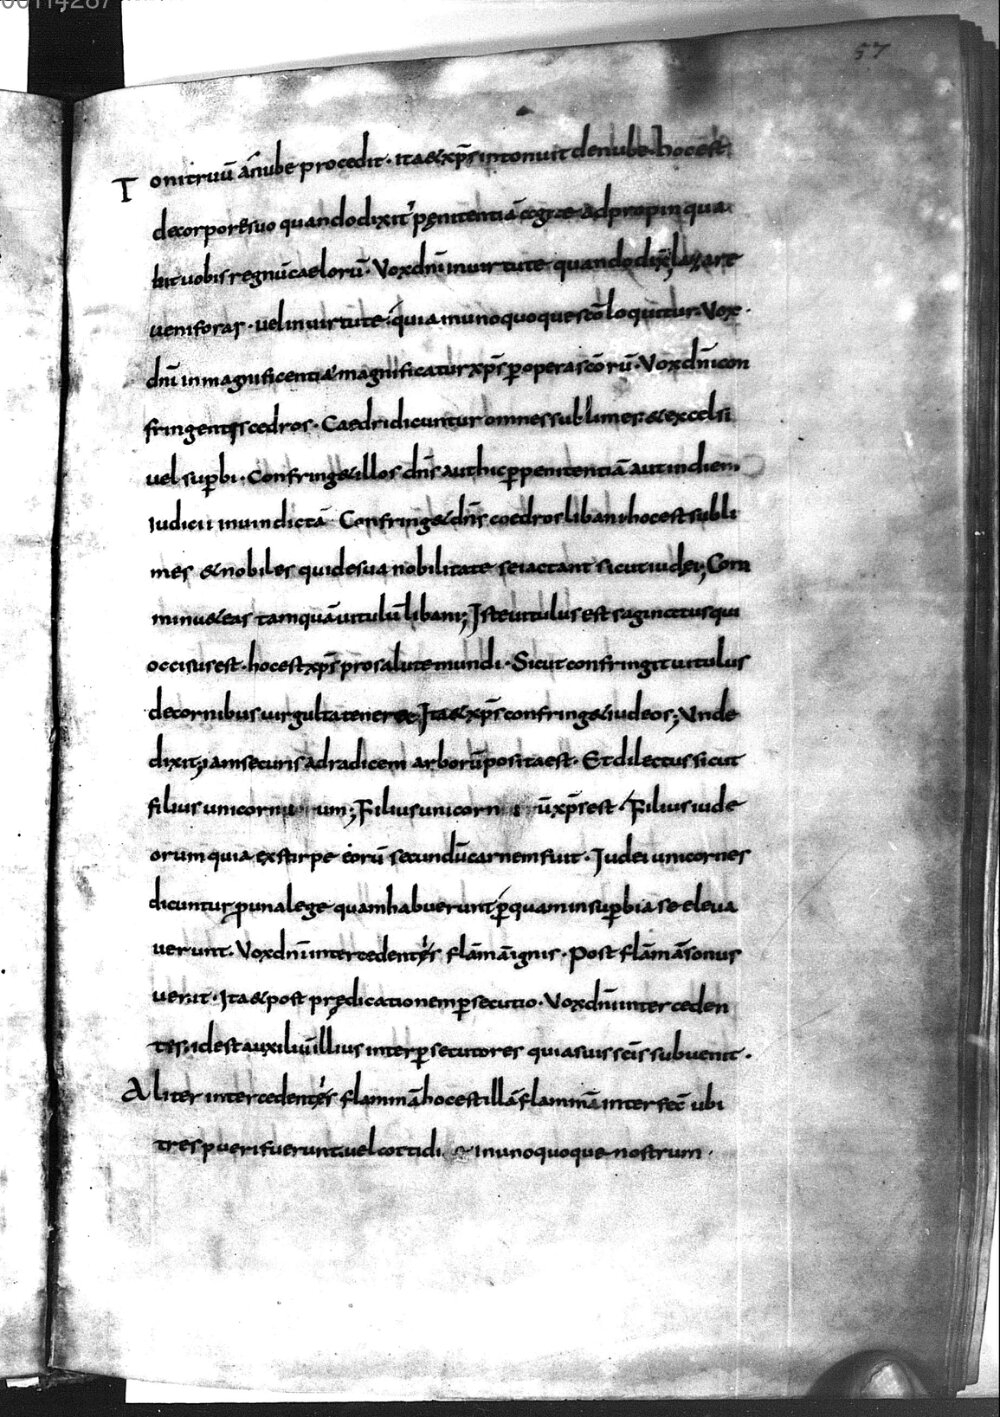 57
Tonitruū ā nube procedit · ita & xp̄s intonuit de nube · hoc est
de corpore suo quando dixit penitentiā agite adpropinqua
bit uobis regnū caelorū · Vox dn̄i in uirtute quando dix̄ lazare
ueni foras · uel in uirtute quia in unoquoque sc̄o loquitur · Vox
dn̄i in magnificentia magnificatur xp̄s ꝑ opera sc̄orū · Vox dn̄i con
fringentis cedros · Caedri dicuntur omnes sublimes & excelsi
uel suꝑbi · Confring& illos dn̄s aut hic ꝑ penitentiā aut in diem
iudicii in uindictā · Confring& dn̄s coedros libani hoc est subli
mes & nobiles qui de sua nobilitate se iactant sicut iudei; Com
minu& eas tamquā uitulū libani; Iste uitulus est saginatus qui
occisus est · hoc est xp̄s pro salute mundi · Sicut confringit uitulus
de cornibus uirgulta tenere Ita & xp̄s confring& iudeos; Vnde
dixit; iam securis ad radicem arborū posita est · Et dilectus sicut
filius unicorni um; Filius unicorni ū xp̄s est · Filius iude
orum quia ex stirpe eorū secundū carnem fuit · Iudei unicornes
dicuntur ꝑ una lege quam habuerunt ꝑ quam in suꝑbia se eleua
uerunt · Vox dn̄i intercedentis flāmā ignis · Post flāmā sonus
uenit · Ita & post prędicationem ꝑsecutio · Vox dn̄i interceden
tis; id est auxiliū illius inter ꝑsecutores quia suis sc̄is subuenit ·
Aliter intercedentis flammā hoc est illā flammā interfec̄ ubi
tres pueri fuerunt uel cottidi in unoquoque nostrum ·